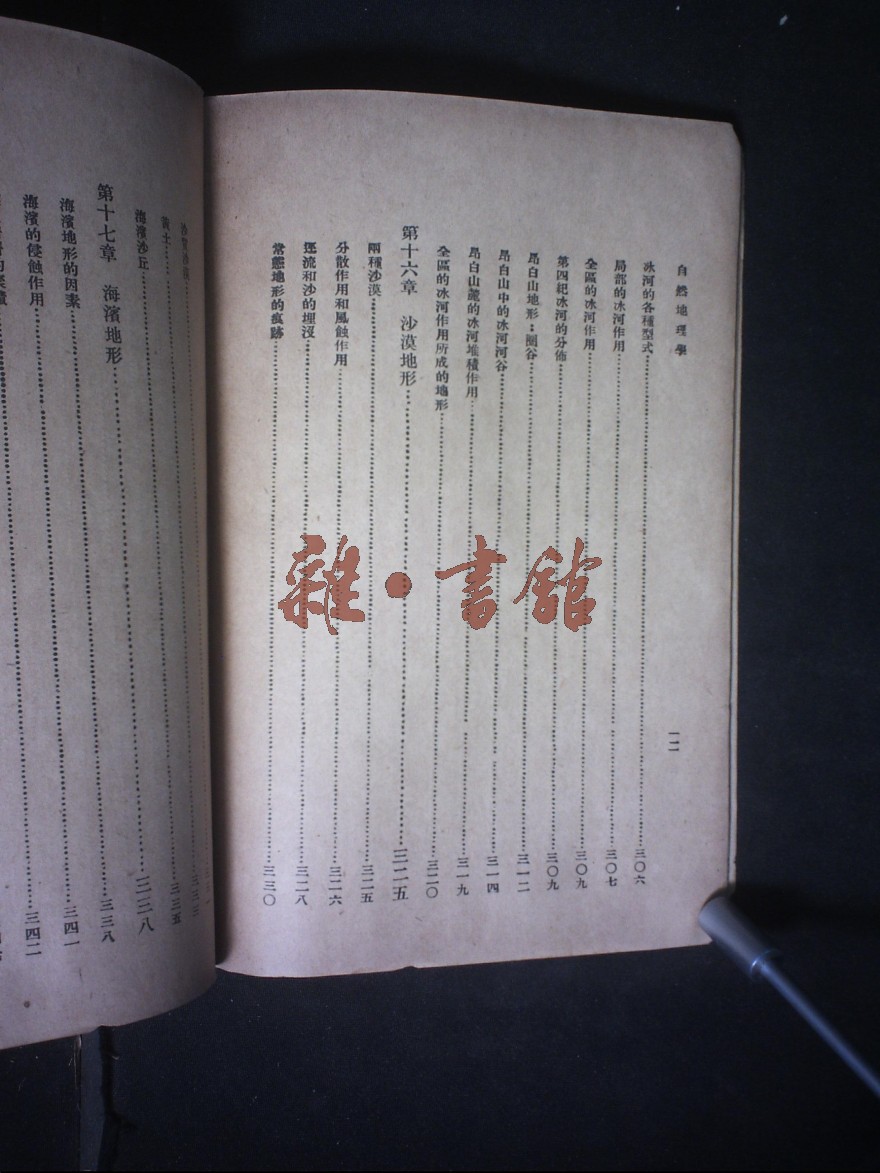 自然地理學
一二
冰河的各種型式……三〇六
局部的冰河作用……三〇七
全區的冰河作用……三〇九
第四紀冰河的分佈……三〇九
昂白山地形：圈谷……三一二
昂白山中的冰河河谷……三一四
昂白山麓的冰河堆積作用……三一九
全區的冰河作用所成的地形……三二〇
第十六章 沙漠地形……三二五
兩種沙漠……三二五
分散作用和風蝕作用……三二六
逕流和沙的埋沒……三二八
常態地形的痕跡……三三〇
黃土……三三三
海濱沙丘……三三五
第十七章 海濱地形……三三八
海濱地形的因素……三三八
海濱的侵蝕作用……三四一
三四二
雜·書館